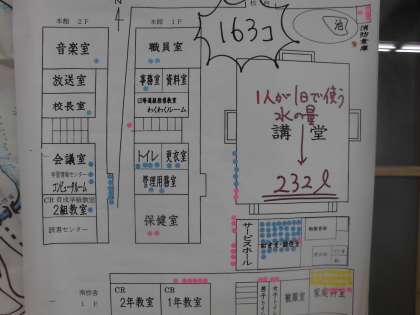 本館 2F
本館 1F
N
163コ
池
消防倉庫
音楽室
職員室
放送室
事務室
資料室
校長室
わくわくルーム
1人が1日で使う
水の量
講堂
232ℓ
会議室
学習情報センター
コンピュータルーム
トイレ
更衣室
管理用務室
CR 育成学級教室
2組教室
読書センター
保健室
サービスホール
給食室・調理室
南校舎
1F
CR
2年教室
CR
1年教室
男子トイレ
女子トイレ
被服室
家庭科室